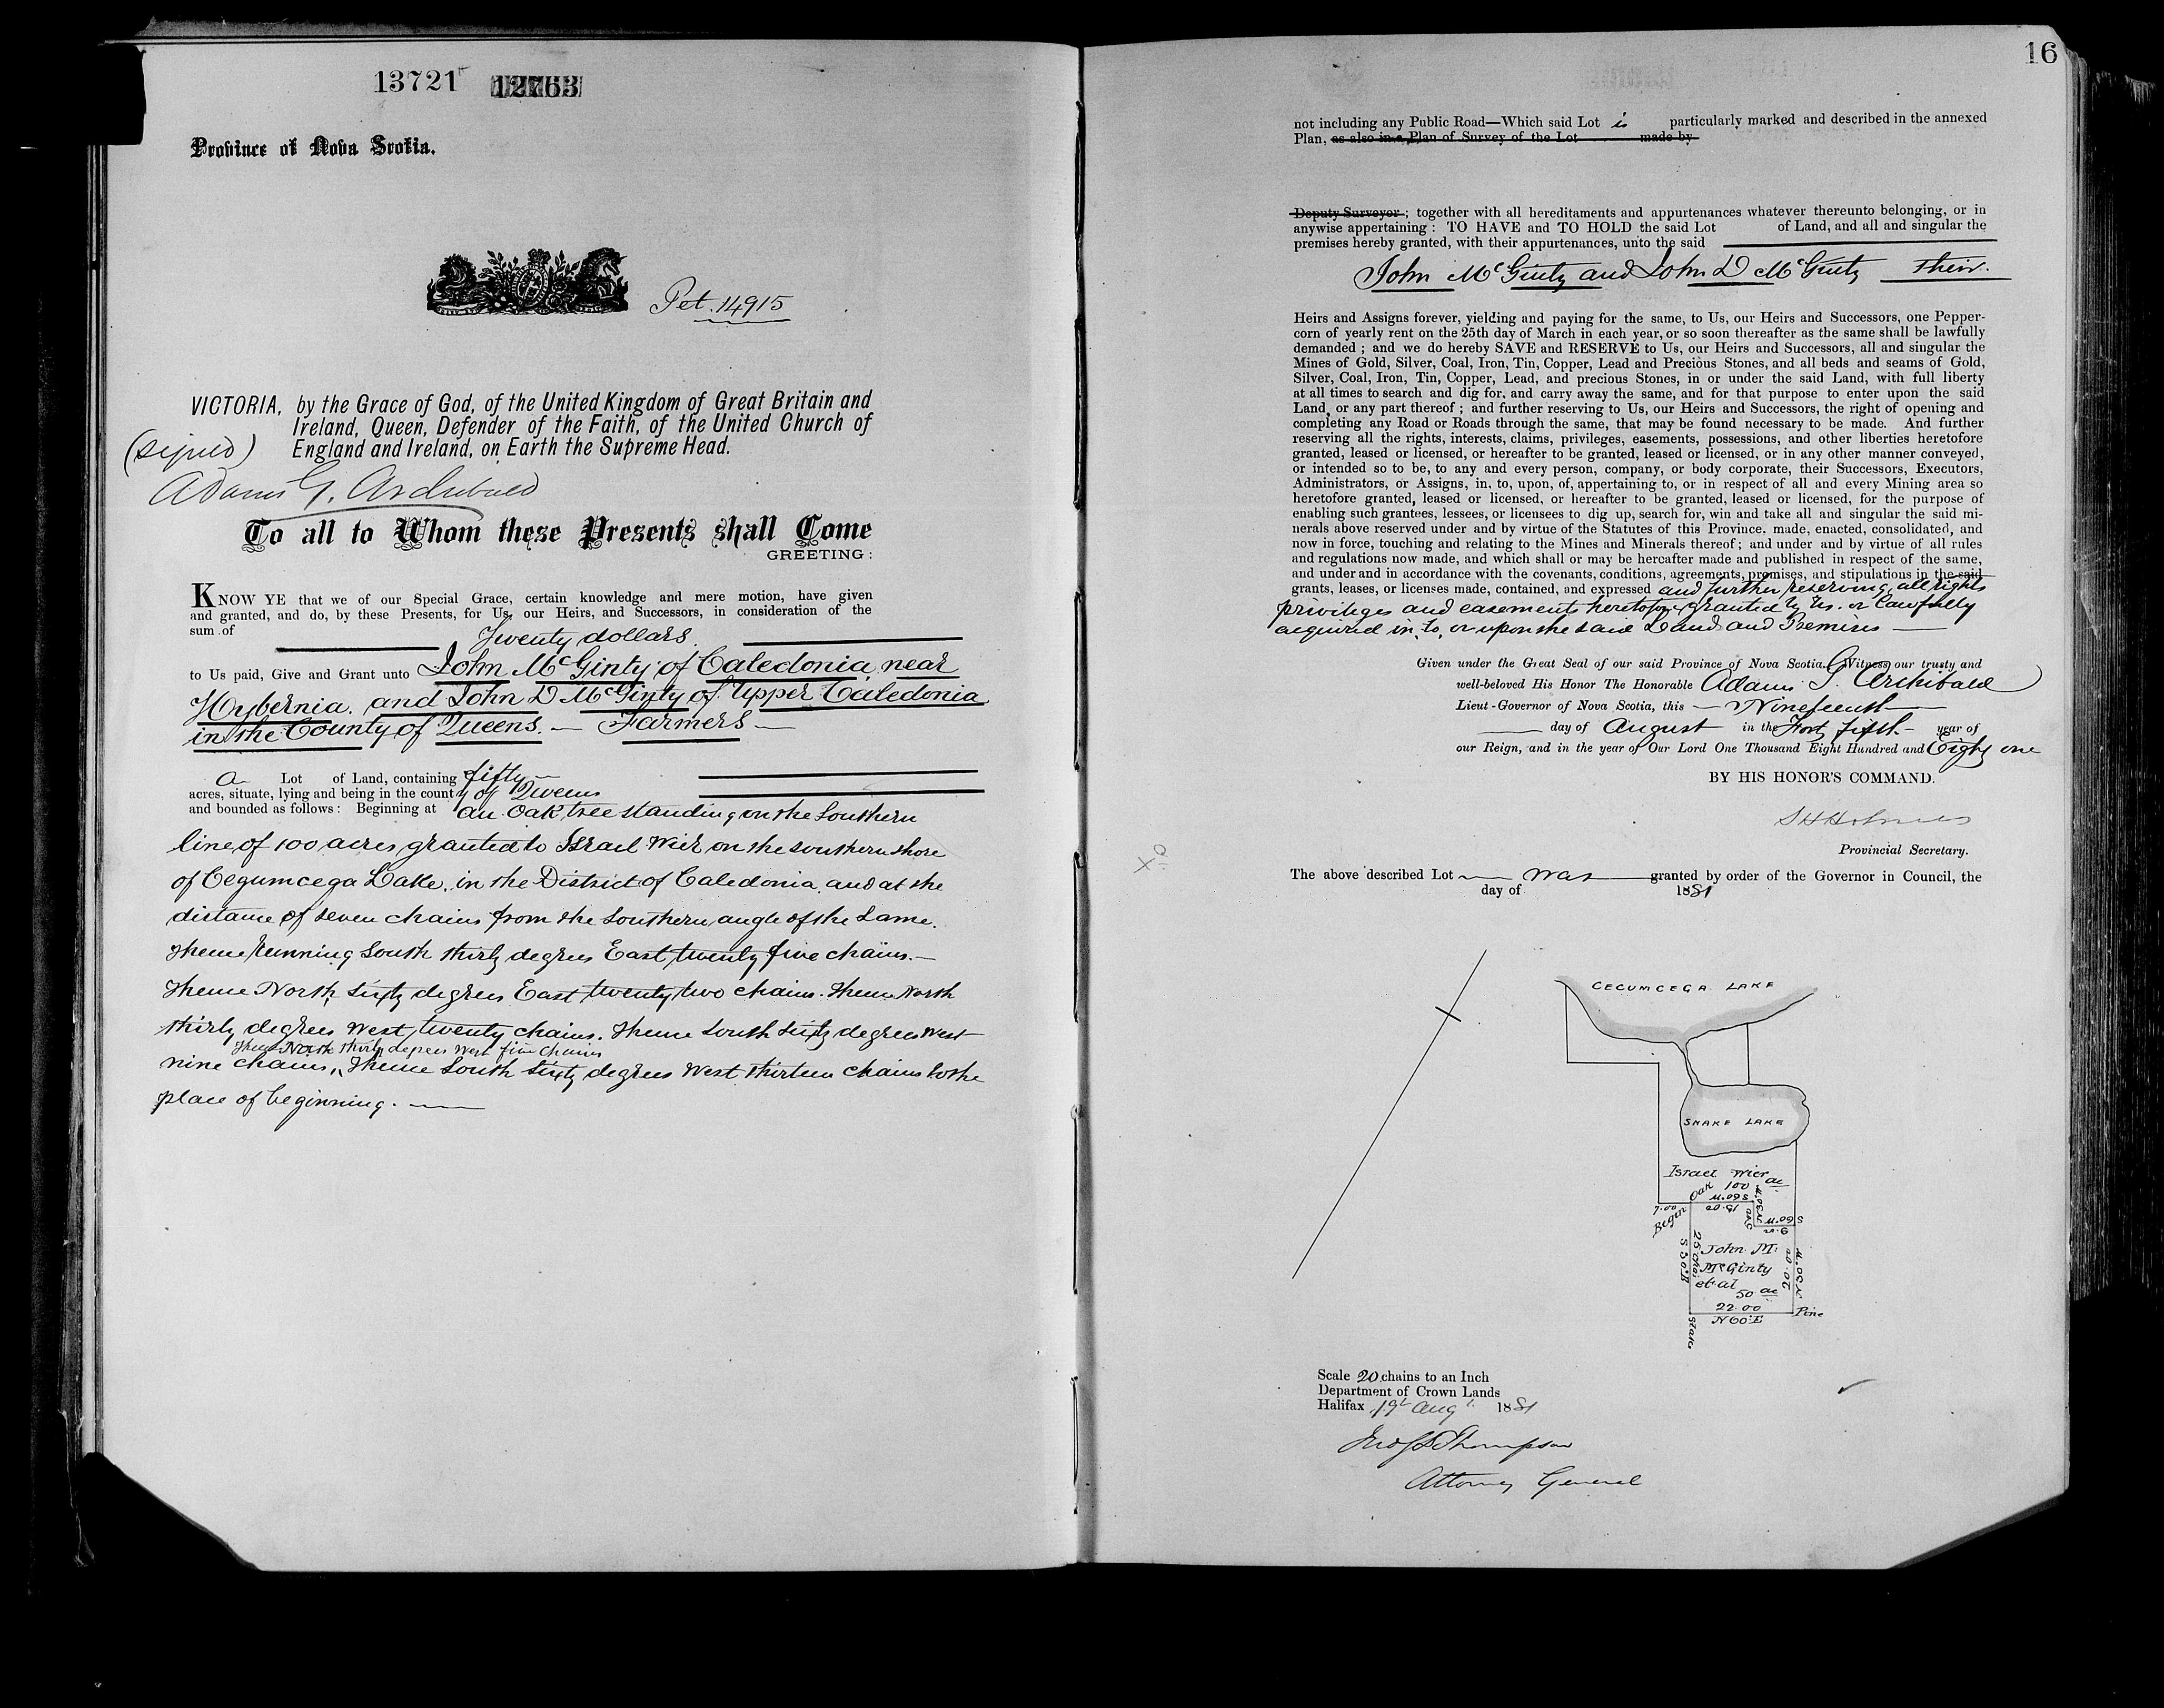 13721 12763
Province of Nova Scotia.
Pet. 14915
VICTORIA, by the Grace of God, of the United Kingdom of Great Britain and
Ireland, Queen, Defender of the Faith, of the United Church of
England and Ireland, on Earth the Supreme Head.
(signed)
Adams G. Archibald
To all to Whom these Presents shall Come
GREETING:
KNOW YE that we of our Special Grace, certain knowledge and mere motion, have given
and granted, and do, by these Presents, for Us, our Heirs, and Successors, in consideration of the
sum of Twenty dollars
to Us paid, Give and Grant unto John McGinty of Caledonia near
Hybernia. and John D McGinty of Upper Caledonia
in the County of Queens. — Farmers —
a Lot of Land, containing fifty
acres, situate, lying and being in the county of Queens
and bounded as follows: Beginning at an Oak tree standing on the Southern
line of 100 acres granted to Israel Wier on the southern shore
of Cegumcega Lake, in the District of Caledonia and at the
distance of seven chains from the Southern angle of the Same.
Thence running South thirty degrees East twenty five chains.—
Thence North sixty degrees East twenty two chains. Thence North
thirty degrees West twenty chains. Thence South sixty degrees West
Thence North thirty degrees West five chains
nine chains, Thence South sixty degrees West thirteen chains to the
place of beginning. —
16
not including any Public Road—Which said Lot is particularly marked and described in the annexed
Plan, as also in a Plan of Survey of the Lot made by
Deputy Surveyor; together with all hereditaments and appurtenances whatever thereunto belonging, or in
anywise appertaining: TO HAVE and TO HOLD the said Lot of Land, and all and singular the
premises hereby granted, with their appurtenances, unto the said
John McGinty and John D McGinty Their
Heirs and Assigns forever, yielding and paying for the same, to Us, our Heirs and Successors, one Pepper-
corn of yearly rent on the 25th day of March in each year, or so soon thereafter as the same shall be lawfully
demanded; and we do hereby SAVE and RESERVE to Us, our Heirs and Successors, all and singular the
Mines of Gold, Silver, Coal, Iron, Tin, Copper, Lead and Precious Stones, and all beds and seams of Gold,
Silver, Coal, Iron, Tin, Copper, Lead, and precious Stones, in or under the said Land, with full liberty
at all times to search and dig for, and carry away the same, and for that purpose to enter upon the said
Land, or any part thereof; and further reserving to Us, our Heirs and Successors, the right of opening and
completing any Road or Roads through the same, that may be found necessary to be made. And further
reserving all the rights, interests, claims, privileges, easements, possessions, and other liberties heretofore
granted, leased or licensed, or hereafter to be granted, leased or licensed, or in any other manner conveyed,
or intended so to be, to any and every person, company, or body corporate, their Successors, Executors,
Administrators, or Assigns, in, to, upon, of, appertaining to, or in respect of all and every Mining area so
heretofore granted, leased or licensed, or hereafter to be granted, leased or licensed, for the purpose of
enabling such grantees, lessees, or licensees to dig up, search for, win and take all and singular the said mi-
nerals above reserved under and by virtue of the Statutes of this Province, made, enacted, consolidated, and
now in force, touching and relating to the Mines and Minerals thereof; and under and by virtue of all rules
and regulations now made, and which shall or may be hereafter made and published in respect of the same,
and under and in accordance with the covenants, conditions, agreements, promises, and stipulations in the said
grants, leases, or licenses made, contained, and expressed and further reserving all rights
privileges and easements heretofore granted by Us. or lawfully
acquired in, to, or upon the said Land and Premises —
Given under the Great Seal of our said Province of Nova Scotia. Witness our trusty and
well-beloved His Honor The Honorable Adams G. Archibald
Lieut-Governor of Nova Scotia, this — Nineteenth —
day of August in the Forty fifth — year of
our Reign, and in the year of Our Lord One Thousand Eight Hundred and Eighty one
BY HIS HONOR'S COMMAND.
S H Holmes
Provincial Secretary.
The above described Lot — was — granted by order of the Governor in Council, the
day of 1881
CEGUMCEGA LAKE
SNAKE LAKE
Israel Wier
100 ac
Oak
S60°W
13.00
7.00
Begin
N30W
5.00
S60°W
9.00
John M.
McGinty
et al
50 ac
25 cha.
S 30°E
20.00
N30°W
22.00
N60°E
Pine
Stake
Scale 20 chains to an Inch
Department of Crown Lands
Halifax 19t Augt. 1881
Jno S D Thompson
Attorney General